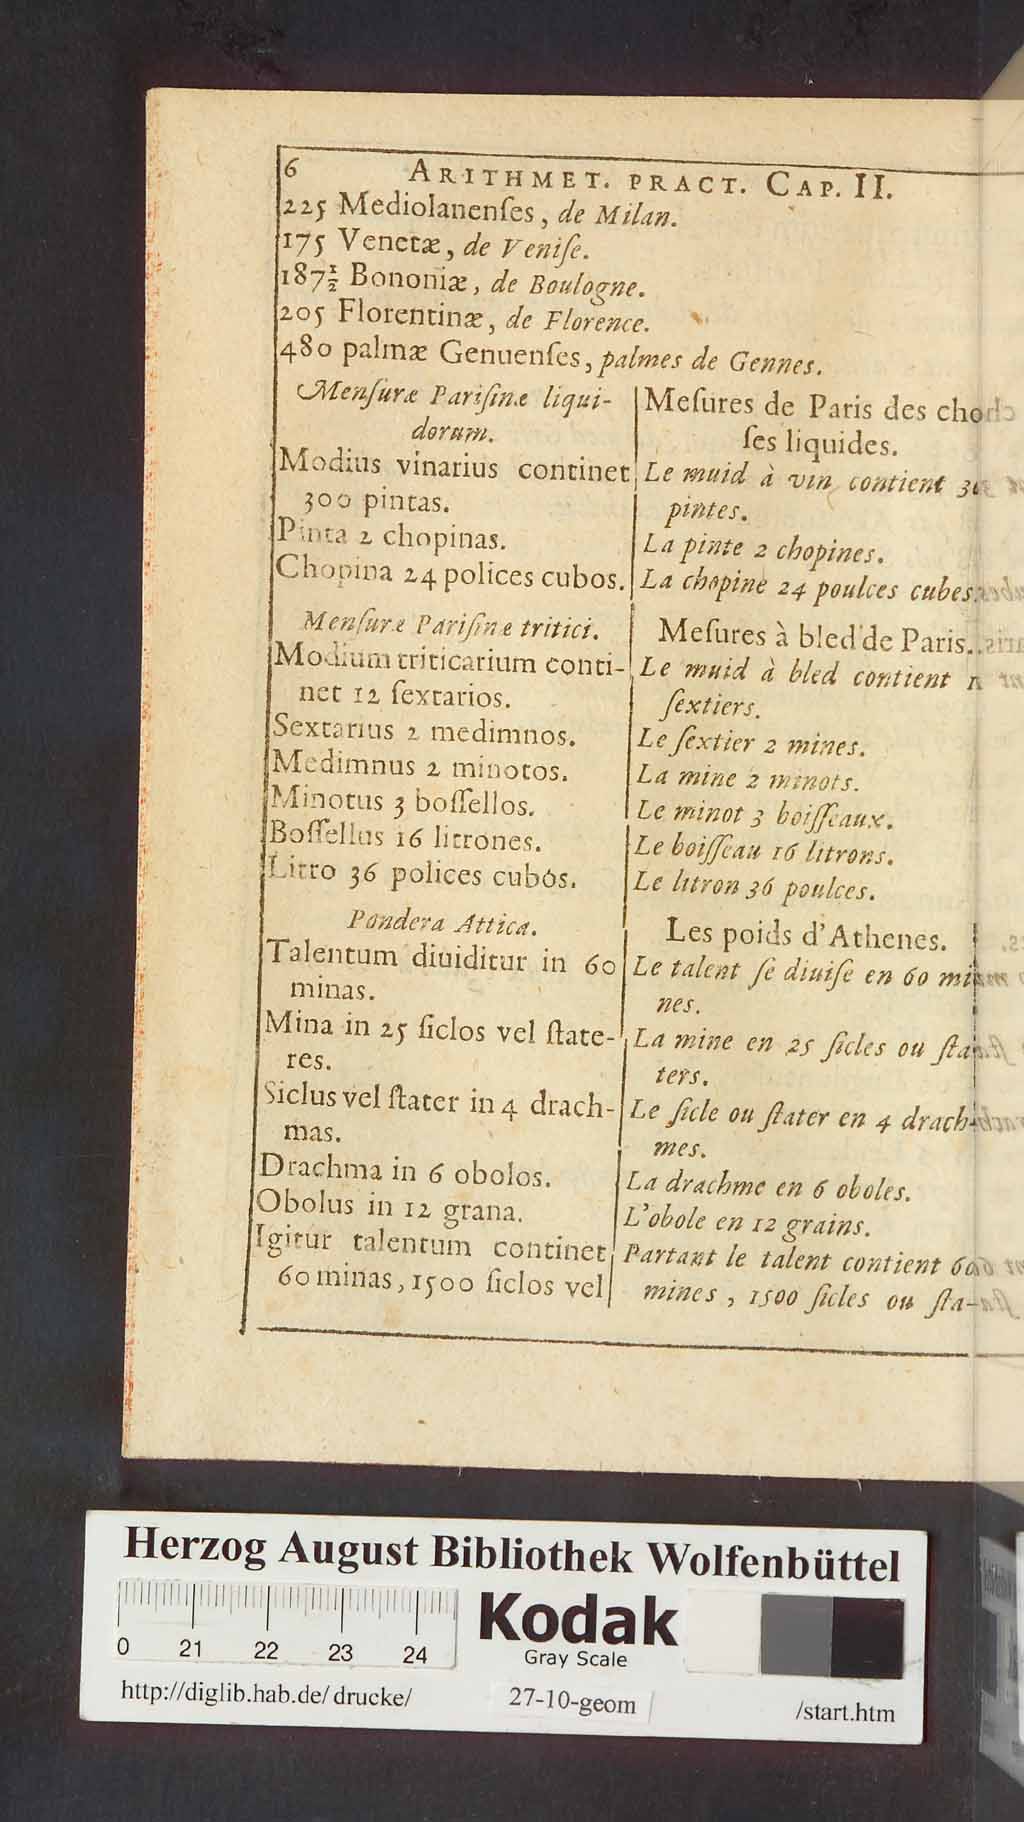 6 ARITHMET. PRACT. CAP. II.
225 Mediolanenſes, de Milan.
175 Venetæ, de Veniſe.
187½ Bononiæ, de Boulogne.
205 Florentinæ, de Florence.
480 palmæ Genuenſes, palmes de Gennes.
Menſuræ Pariſinæ liqui-
dorum.
Modius vinarius continet
300 pintas.
Pinta 2 chopinas.
Chopina 24 polices cubos.
Menſuræ Pariſinæ tritici.
Modium triticarium conti-
net 12 ſextarios.
Sextarius 2 medimnos.
Medimnus 2 minotos.
Minotus 3 boſſellos.
Boſſellus 16 litrones.
Litro 36 polices cubós.
Pondera Attica.
Talentum diuiditur in 60
minas.
Mina in 25 ſiclos vel ſtate-
res.
Siclus vel ſtater in 4 drach-
mas.
Drachma in 6 obolos.
Obolus in 12 grana.
Igitur talentum continet
60 minas, 1500 ſiclos vel
Meſures de Paris des cho
ſes liquides.
Le muid à vin contient
pintes.
La pinte 2 chopines.
La chopine 24 poulces cubes.
Meſures à bled de Paris.
Le muid à bled contient
ſextiers.
Le ſextier 2 mines.
La mine 2 minots.
Le minot 3 boiſſeaux.
Le boiſſeau 16 litrons.
Le litron 36 poulces.
Les poids d'Athenes.
Le talent ſe diuiſe en 60 mi
nes.
La mine en 25 ſicles ou ſta
ters.
Le ſicle ou ſtater en 4 drach-
mes.
La drachme en 6 oboles.
L'obole en 12 grains.
Partant le talent contient 60
mines, 1500 ſicles ou ſta-
Herzog August Bibliothek Wolfenbüttel
0 21 22 23 24
Kodak
Gray Scale
http://diglib.hab.de/drucke/ 27-10-geom /start.htm